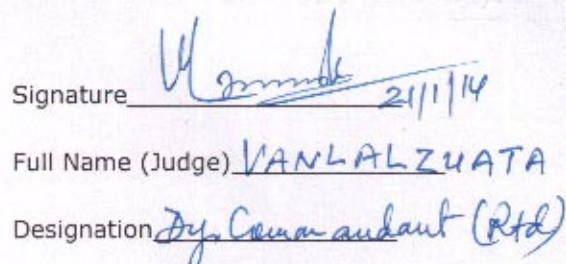 Signature 21/1/14
Full Name (Judge) VANLALZUATA
Designation Dy. Commandant (Rtd)